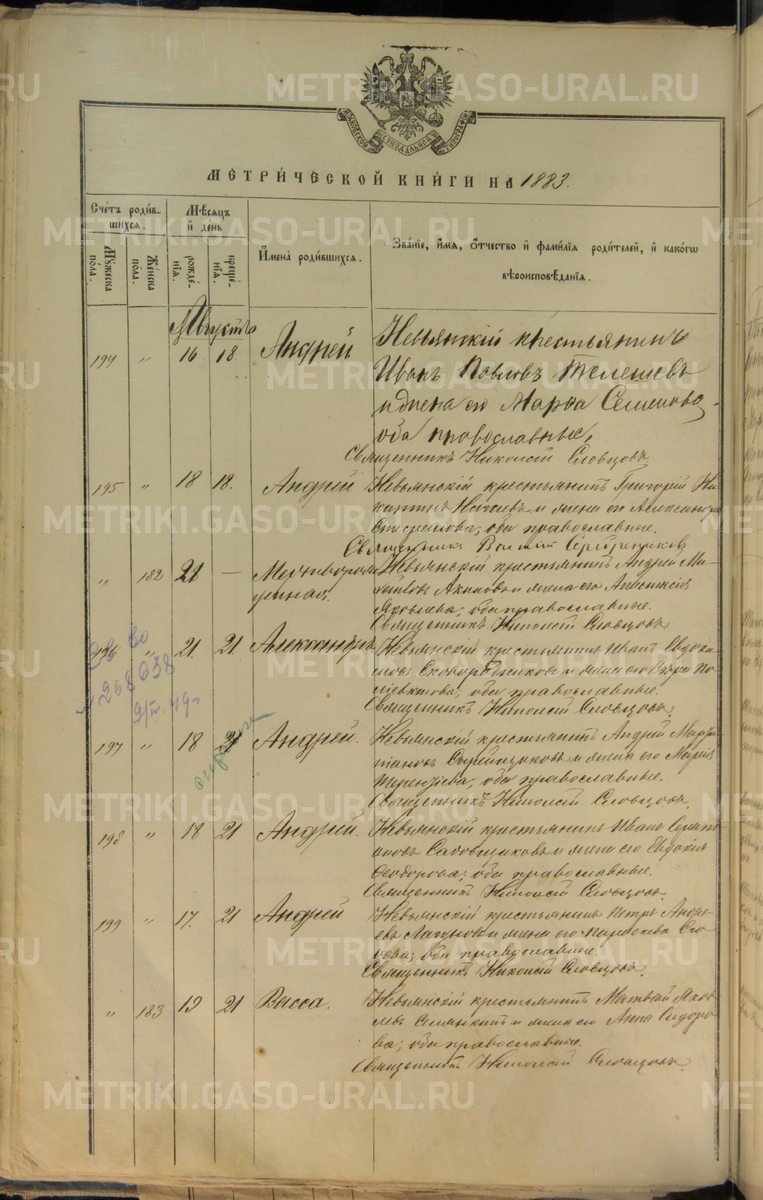 METRIKI.GASO-URAL.RU
МОСКОВСКОЙ СѴНОДАЛЬНОЙ ТИПОГРАФІИ
МЕТРИ́ЧЕСКОЙ КНИ́ГИ НА 1883.
Сче́тъ роди́вшихсѧ.
Мѹ́жеска по́ла.
Же́нска по́ла.
Мѣ́сѧцъ и҆ де́нь
рожде́нїѧ.
креще́нїѧ.
И҆мена̀ роди́вшихсѧ.
Зва́нїе, и҆́мѧ, ѻ҆́тчество и҆ фами́лїѧ роди́телей, и҆ како́гѡ вѣроисповѣ́данїѧ.
Августъ
194 " 16 18 Андрей
Невьянскій крестьянинъ
Иванъ Павловъ Телешевъ
и жена его Марѳа Семенова,
оба православные,
Священникъ Николай Словцовъ
195 " 18 18. Андрей
Невьянскій крестьянинъ Григорій Ни
китинъ и жена его Александра
оба православные.
Священникъ Серебренниковъ
" 182 21 — Мертворожденная.
Невьянскій крестьянинъ Андрей Ми
хайловъ Акимовъ и жена его Анастасія
Яковлева, оба православные.
Священникъ Николай Словцовъ
196 " 21. 21 Александръ
Невьянскій крестьянинъ Иванъ Евдоки
мовъ Сковородниковъ и жена его
оба православные.
Священникъ Николай Словцовъ
268638
197 " 18 21 Андрей.
Невьянскій крестьянинъ Андрей
и жена его Марія
Терентіева, оба православные.
Священникъ Николай Словцовъ.
198 " 18 21 Андрей.
Невьянскій крестьянинъ Иванъ
Садовщиковъ и жена его Евдокія
Ѳеодорова; оба православные.
Священникъ Николай Словцовъ.
199 " 17. 21 Андрей
Невьянскій крестьянинъ Петръ Андре
евъ и жена его Параскева Его
рова; оба православные.
Священникъ Николай Словцовъ.
" 183 19 21 Васса.
Невьянскій крестьянинъ Матвей Яков
левъ и жена его Анна Сидоро
ва; оба православные.
Священникъ Николай Словцовъ.